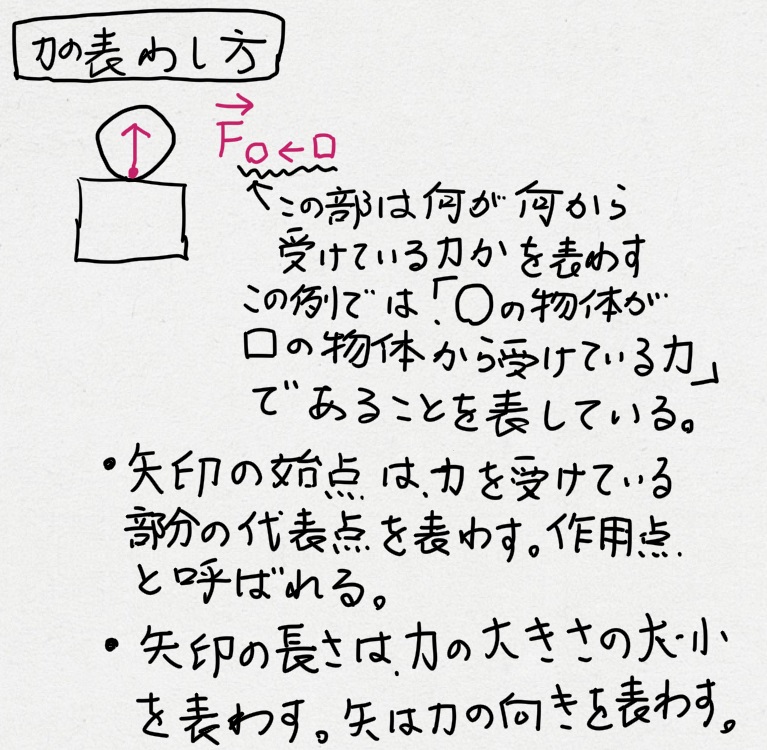 力の表わし方
F○←□
↑この部は何が何から
受けている力かを表わす
この例では「○の物体が
□の物体から受けている力」
であることを表している。
•矢印の始点は、力を受けている
部分の代表点を表わす。作用点
と呼ばれる。
•矢印の長さは、力の大きさの大・小
を表わす。矢は力の向きを表わす。